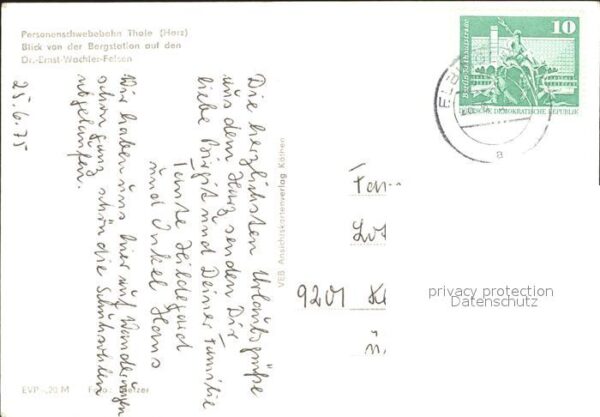 Personenschwebebahn Thale (Harz)
Blick von der Bergstation auf den
Dr.-Ernst-Wachler-Felsen
25.6.75
Die herzlichsten Urlaubsgrüße
aus dem Harz senden Dir
liebe Birgit und Deiner Familie
Tante Hildegard
und Onkel Hans
Wir haben uns hier auf Wanderungen
schon ganz schön die Schuhsohlen
abgelaufen.
VEB Ansichtskartenverlag Köthen
10
Berlin · Rathausstraße
DEUTSCHE DEMOKRATISCHE REPUBLIK
a
Fam
9201
privacy protection
Datenschutz
EVP -,20 M